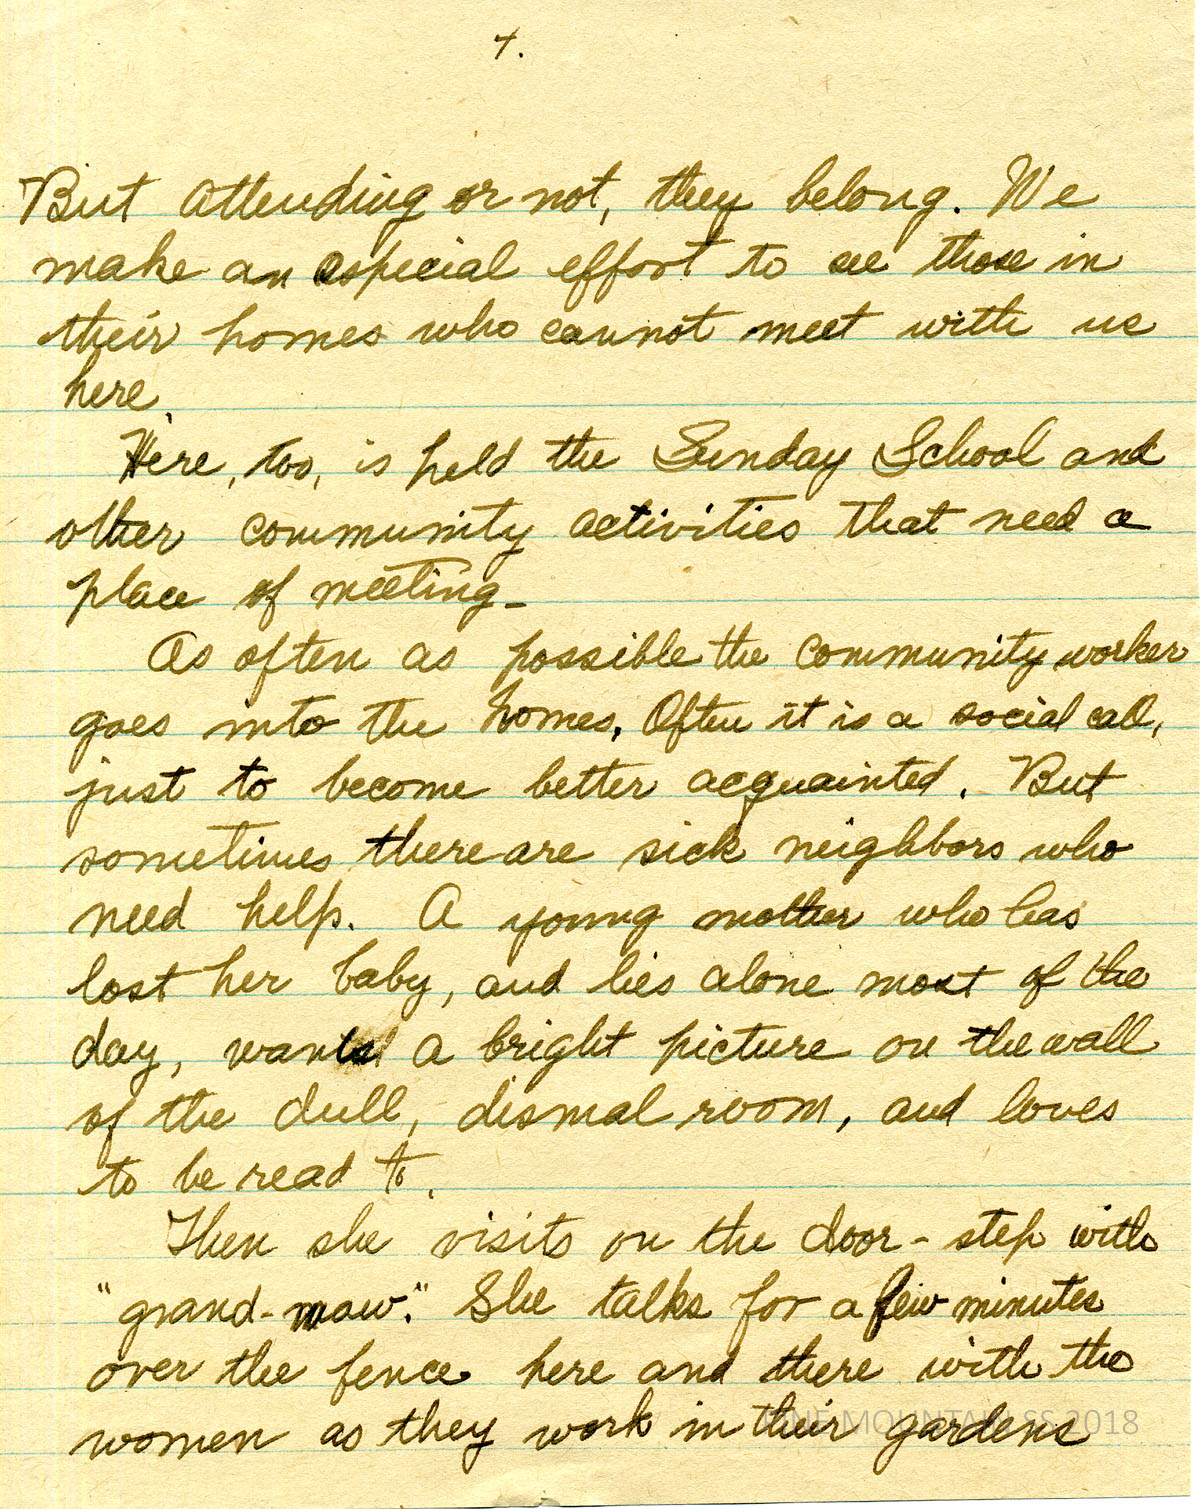 4.
But attending or not, they belong. We
make an especial effort to see those in
their homes who cannot meet with us
here.
Here, too, is held the Sunday School and
other community activities that need a
place of meeting -
As often as possible the community worker
goes into the homes. Often it is a social call,
just to become better acquainted. But
sometimes there are sick neighbors who
need help. A young mother who has
lost her baby, and lies alone most of the
day, wants a bright picture on the wall
of the dull, dismal room, and loves
to be read to.
Then she visits on the door-step with
"grand-maw." She talks for a few minutes
over the fence here and there with the
women as they work in their gardens
PINE MOUNTAIN SS 2018